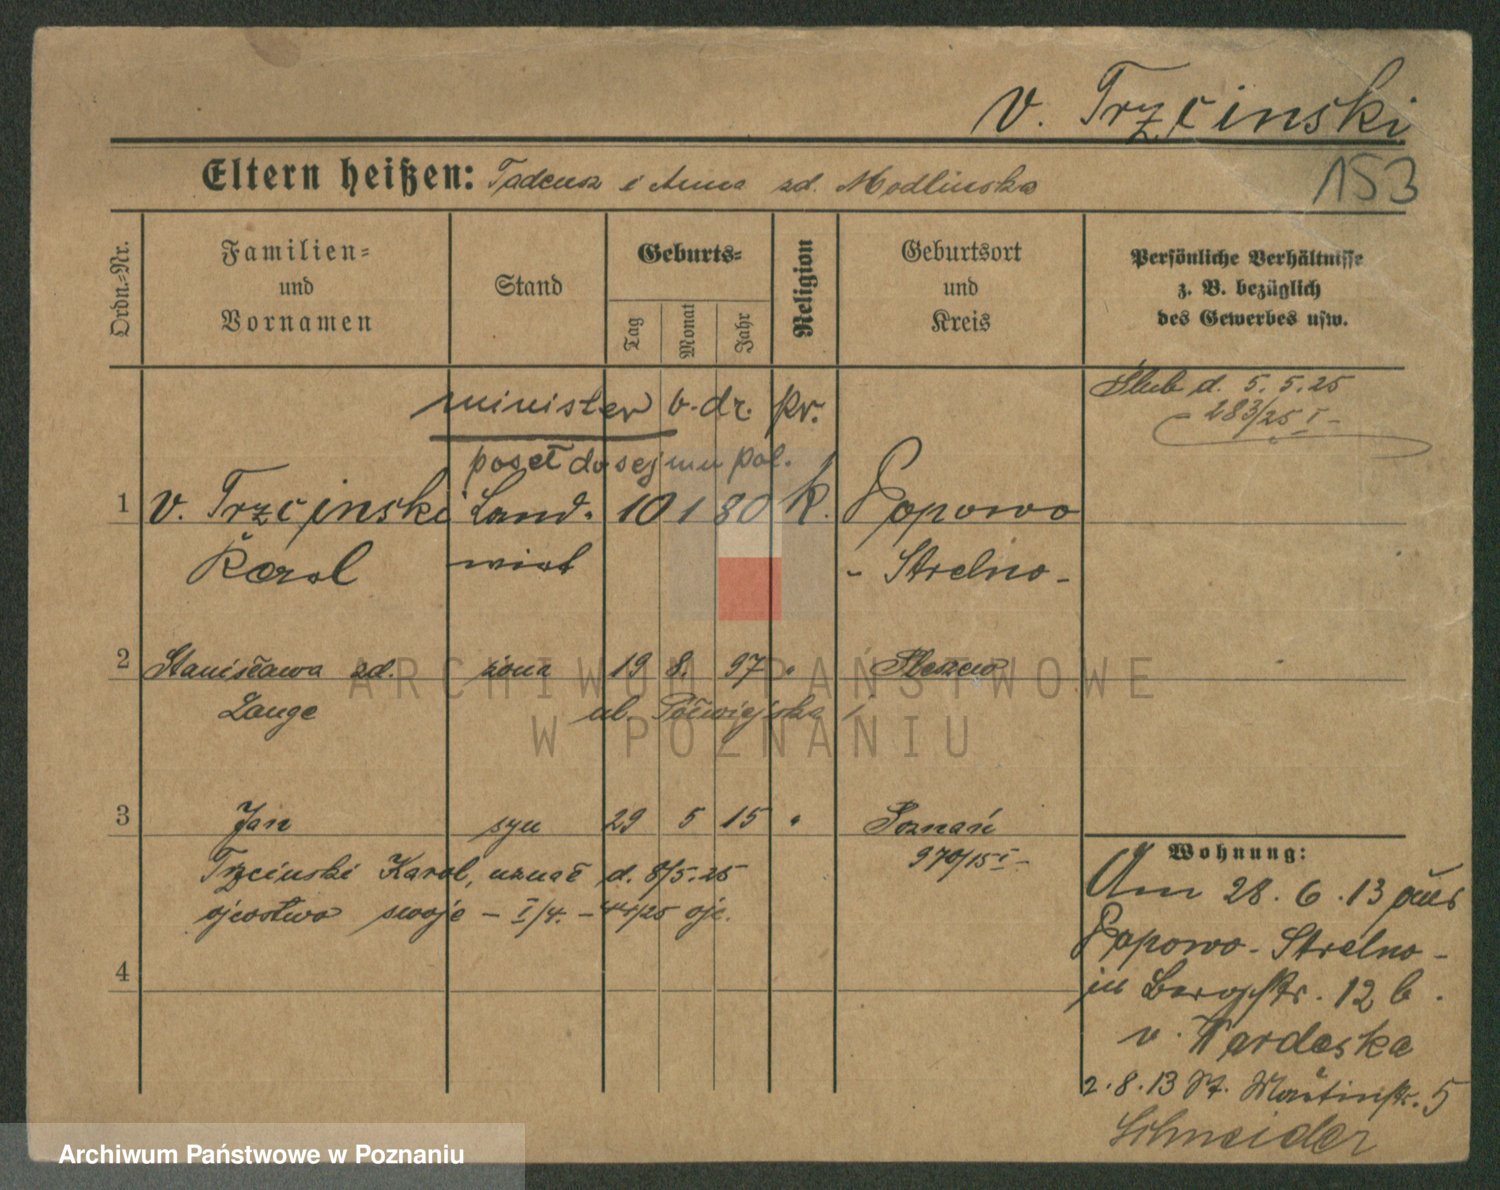 v. Trzcinski
153
Eltern heißen: Tadeusz i Anna zd. Modlinska
Ordn.-Nr.
Familien- und Vornamen
Stand
Geburts-
Tag
Monat
Jahr
Religion
Geburtsort und Kreis
Persönliche Verhältnisse
z. B. bezüglich
des Gewerbes usw.
Ślub d. 5.5.25
283/25 I
minister b. dz. pr.
poseł do sejmu pol.
1 v. Trzcinski Land- 10 1 80 k. Popowo
Karol wirt - Strelno -
2 Stanisława zd. żona 19 8. 97 "
Lange ul. Półwiejska
3 Jan syn 29 5 15 " Poznań
970/15 I
Trzcinski Karol, uznał d. 8/5.25
ojcostwo swoje - I/4. - 44/25 ojc.
4
Wohnung:
Am 28. 6. 13 aus
Popowo - Strelno -
in Bergstr. 12 b.
v. Wardeska
2. 8. 13 St. Martinstr. 5
Schneider
ARCHIWUM PAŃSTWOWE
W POZNANIU
Archiwum Państwowe w Poznaniu